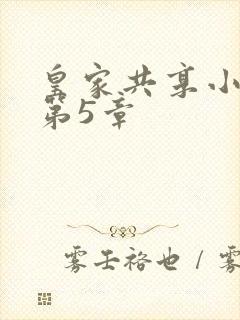 皇家共享小
第5章
雾壬裕也 / 雾